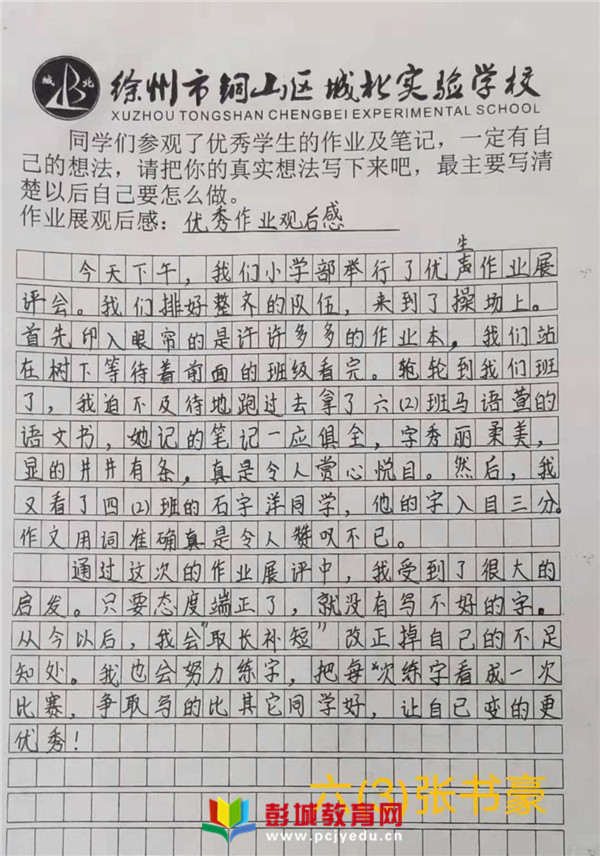 城北
徐州市铜山区城北实验学校
XUZHOU TONGSHAN CHENGBEI EXPERIMENTAL SCHOOL
同学们参观了优秀学生的作业及笔记，一定有自
己的想法，请把你的真实想法写下来吧，最主要写清
楚以后自己要怎么做。
作业展观后感：优秀作业观后感
生
今天下午，我们小学部举行了优声作业展
评会。我们排好整齐的队伍，来到了操场上。
首先印入眼帘的是许许多多的作业本，我们站
在树下等待着前面的班级看完。轮轮到我们班
了，我迫不及待地跑过去拿了六(2)班马语萱的
语文书，她记的笔记一应俱全，字秀丽柔美，
显的井井有条，真是令人赏心悦目。然后，我
又看了四(2)班的石宇洋同学，他的字入目三分。
作文用词准确真是令人赞叹不已。
通过这次的作业展评中，我受到了很大的
启发。只要态度端正了，就没有写不好的字。
从今以后，我会“取长补短”改正掉自己的不足
知处。我也会努力练字，把每次练字看成一次
比赛，争取写的比其它同学好，让自己变的更
优秀！
六(3)张书豪
彭城教育网
www.pcjyedu.cn